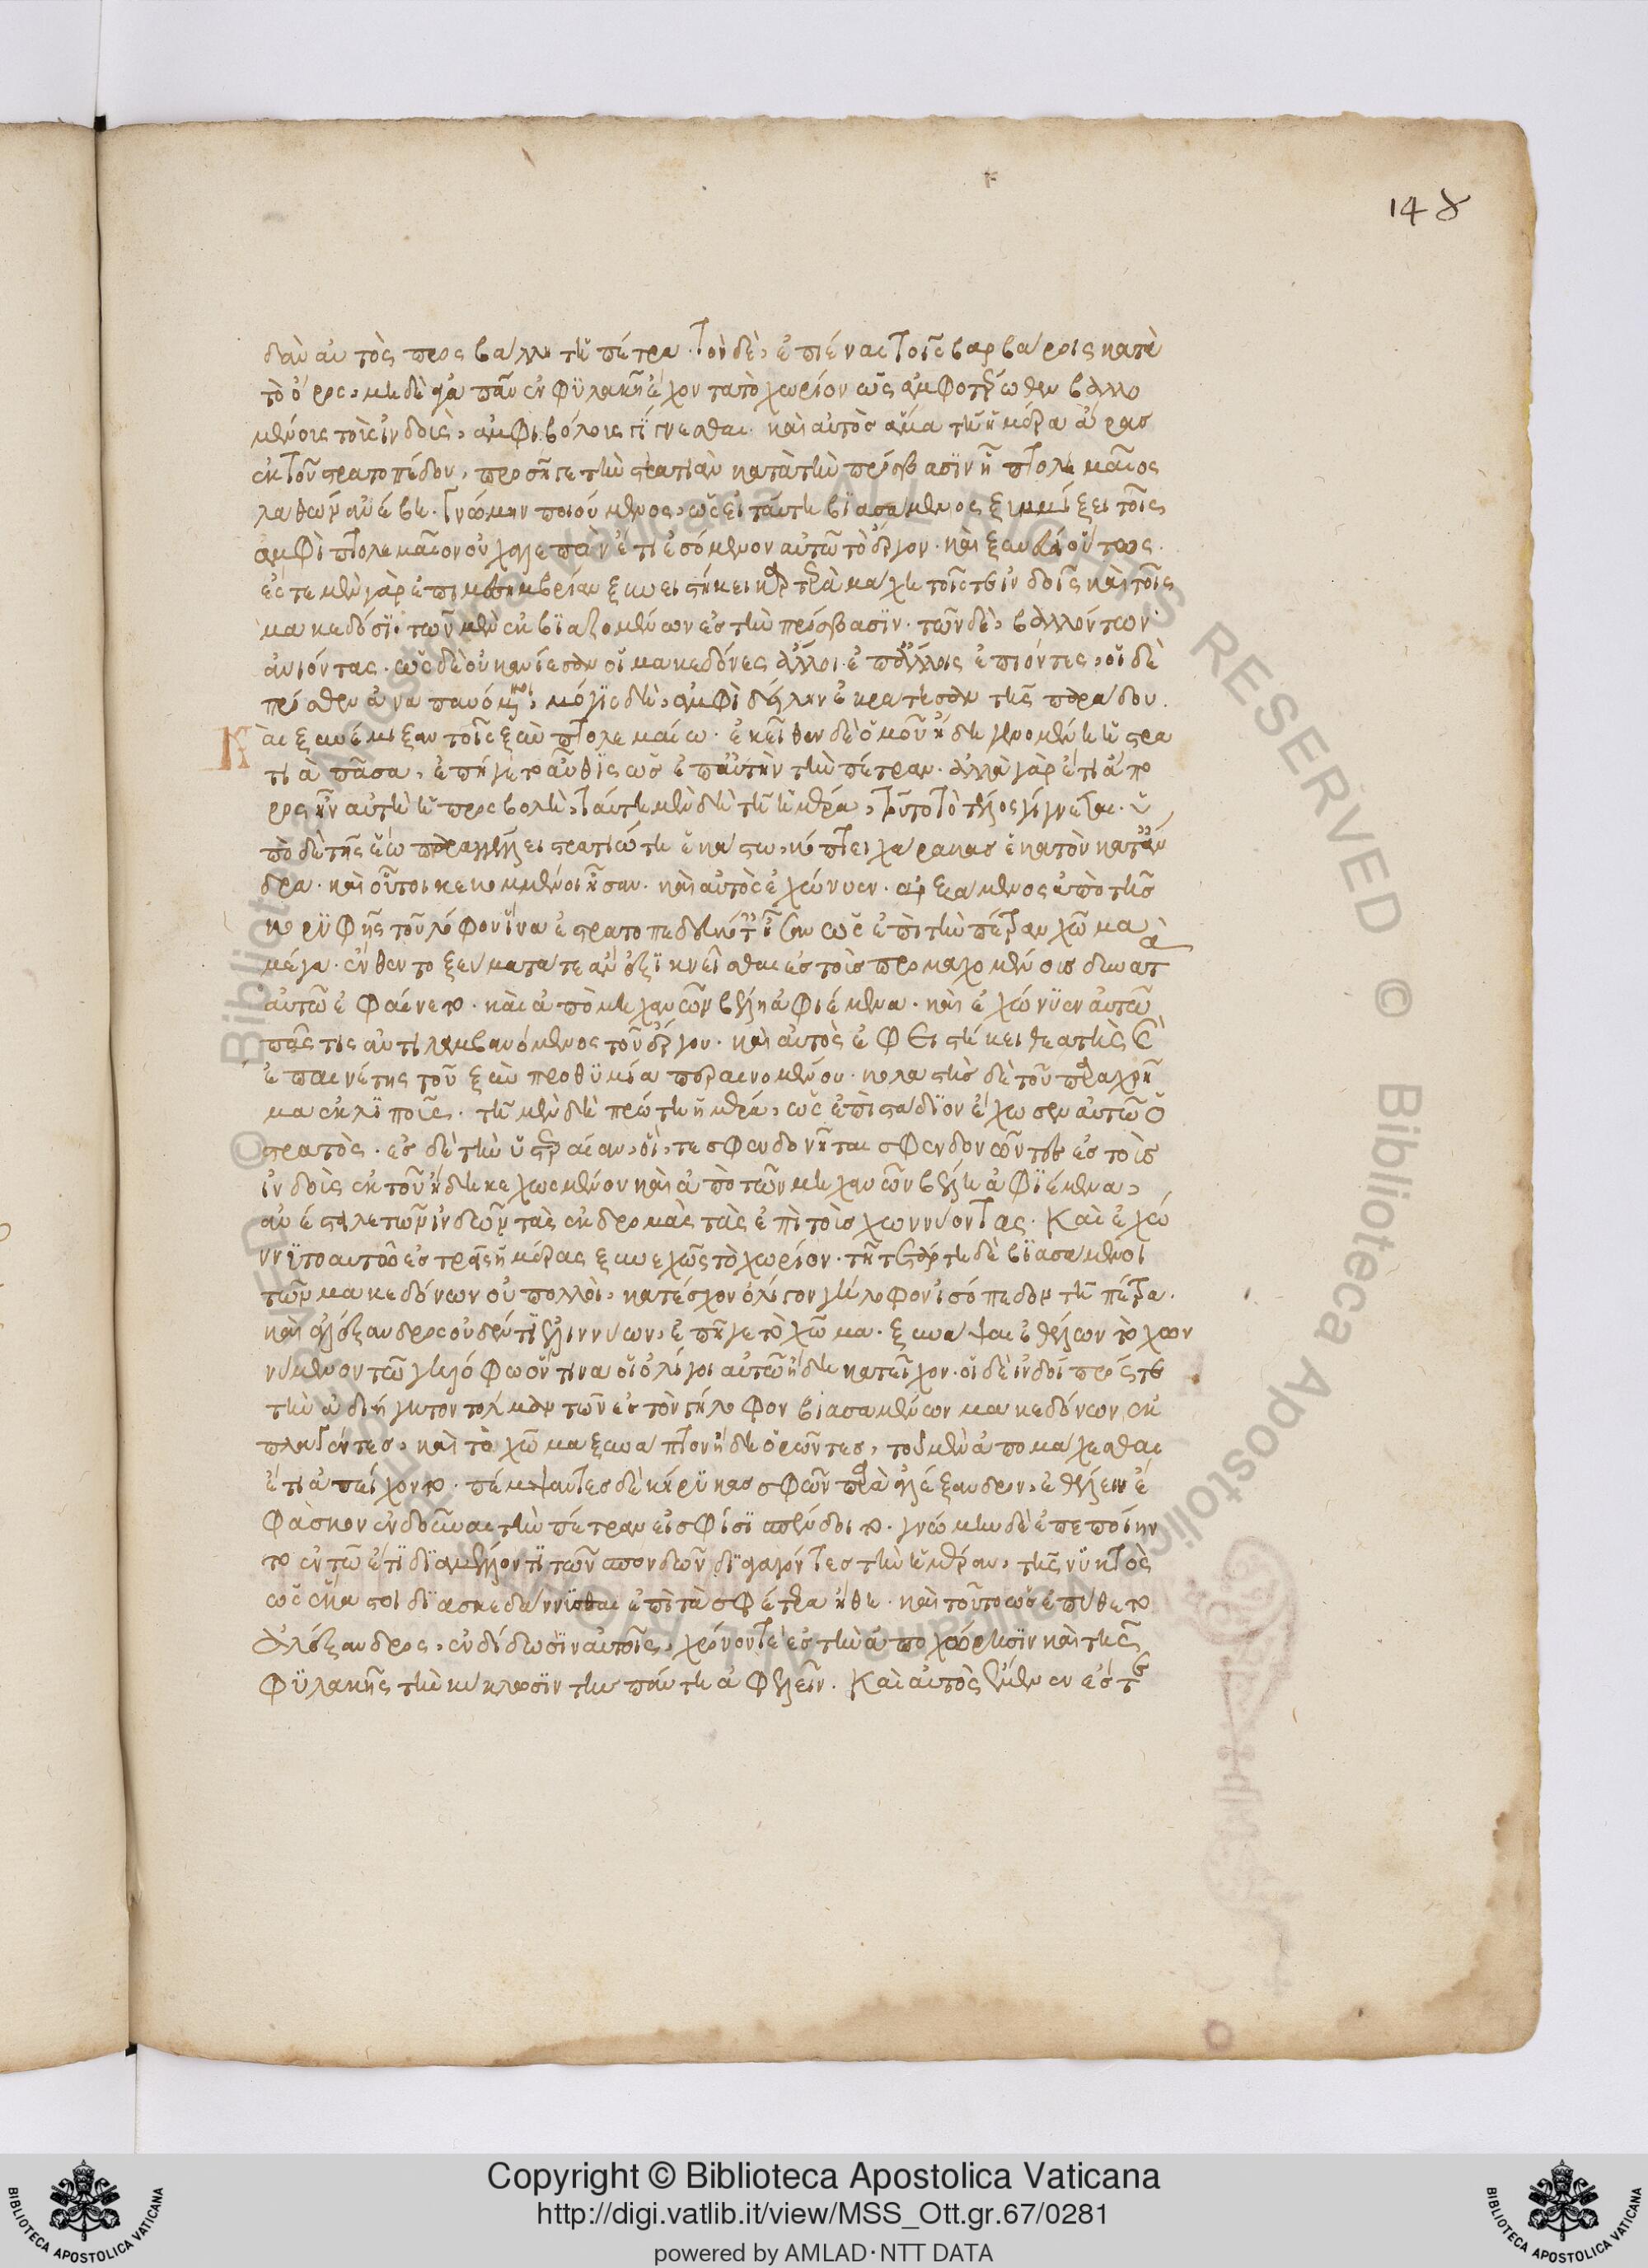 148
δὰν αὐτὸς προσβάλλῃ τῇ πέτρα. τὸν δὲ, ἐπιέναι τοῖς βαρβάροις κατὰ
τὸ ὄρος, μηδὲ ἀγαπᾶν ἐν φϋλακῇ ἔχοντα τὸ χωρίον ὡς ἀμφοτέρωθεν βαλλο
μένους τοὺς ἰνδοὺς, ἀμφιβόλους γίγνεσθαι. καὶ αὐτὸς ἅμα τῇ ἡμέρα ἄρας
ἐκ τοῦ στρατοπέδου, προσῆγε τὴν στρατιὰν κατὰ τὴν πρόσβασϊν ᾗ πτολεμαῖος
λαθὼν ἀνέβη. γνώμην ποιούμενος, ὡς εἰ ταύτη βϊασάμενος ξυμμίξει τοῖς
ἀμφὶ πτολεμαῖον οὐ χαλεπὸν ἔτι ἐσόμενον αὐτῶ τὸ ἔργον. καὶ ξυνέβη οὕτως.
ἔστε μὲν γὰρ ἐπὶ μεσημβρίαν ξυνειστήκει καρτερὰ μάχη τοῖς τε ἰνδοῖς καὶ τοῖς
μακεδόσϊ. τῶν μὲν ἐκβϊαζομένων ἐς τὴν πρόσβασϊν. τῶν δὲ, βαλλόντων
ἀνιόντας. ὡς δὲ οὐκ ἀνίεσαν οἱ μακεδόνες ἄλλοι ἐπ' ἄλλοις ἐπιόντες, οἱ δὲ
πρόσθεν ἀναπαυόμενοι, μόγις δὴ, ἀμφὶ δείλην ἐκράτησαν τῆς παρόδου.
Καὶ ξυνέμιξαν τοῖς ξὺν πτολεμαίω. ἐκεῖθεν δὲ ὁμοῦ ἤδη γενομένη ἡ στρα
τιὰ πᾶσα, ἐπήγετο αὖθϊς ὡς ἐπ' αὐτὴν τὴν πέτραν. ἀλλὰ γὰρ ἔτι ἄπο
ρος ἦν αὐτῆ ἡ προσβολὴ, ταύτη μὲν δὴ τῇ ἡμέρα, τοῦτο τὸ τέλος γίγνεται. ὑ
πὸ δὲ τὴν ἕω παραγγέλλει στρατιώτη ἑκάστω, κόπτειν χάρακας ἑκατὸν κατ' ἄν
δρα. καὶ οὗτοι κεκομμένοι ἦσαν. καὶ αὐτὸς ἐχώννυεν. ἀρξάμενος ἀπὸ τῆς
κορϋφῆς τοῦ λόφου ἵνα ἐστρατοπεδευκότες ἦσαν ὡς ἐπὶ τὴν πέτραν χῶμα
μέγα. ἔνθεν τοξεύματά τε ἂν ἐξϊκνεῖσθαι ἐς τοὺς προμαχομένους δυνατὰ
αὐτῶ ἐφαίνετο. καὶ ἀπὸ μηχανῶν βέλη ἀφιέμενα. καὶ ἐχώννϋεν αὐτῶ
πᾶς τις ἀντιλαμβανόμενος τοῦ ἔργου. καὶ αὐτὸς ἐφειστήκει θεατὴς καὶ
ἐπαινέτης τοῦ ξὺν προθϋμία περαινομένου. κολαστὴς δὲ τοῦ παραχρῆ
μα ἐκλϊποῦς. τῇ μὲν δὴ πρώτη ἡμέρα, ὡς ἐπὶ στάδϊον ἔχωσεν αὐτῶ ὁ
στρατὸς. ἐς δὲ τὴν ὑστεραίαν, οἵ, τε σφενδονῆται σφενδονῶντες ἐς τοὺς
ἰνδοὺς ἐκ τοῦ ἤδη κεχωσμένου καὶ ἀπὸ τῶν μηχανῶν βέλη ἀφϊέμενα,
ἀνέστελλε τῶν ἰνδῶν τὰς ἐκδρομὰς τὰς ἐπὶ τοὺς χωννύοντας. Καὶ ἐχώ
ννϋτο αυτῶ ἐς τρεῖς ἡμέρας ξυνεχῶς τὸ χωρίον. τῇ τετάρτη δὲ βϊασάμενοι
τῶν μακεδόνων οὐ πολλοὶ, κατέσχον ὀλίγον γήλοφον ἰσόπεδον τῇ πέτρα.
καὶ ἀλέξανδρος οὐδέν τϊ ἐλιννύων, ἐπῆγε τὸ χῶμα. ξυνάψαι ἐθέλων τὸ χων
νύμενον τῶ γηλόφω ὅντινα οἱ ὀλίγοι αὐτῶ ἤδη κατεῖχον. οἱ δὲ ἰνδοὶ πρός τε
τὴν ἀδιήγητον τόλμαν τῶν ἐς τὸν γήλοφον βιασαμένων μακεδόνων ἐκ
πλαγέντες, καὶ τὸ χῶμα ξυνάπτον ἤδη ὁρῶντες, τοῦ μὲν ἀπομάχεσθαι
ἔτι ἀπείχοντο. πέμψαντες δὲ κήρϋκας σφῶν παρὰ ἀλέξανδρον, ἐθέλειν ἔ
φασκον ἐνδοῦναι τὴν πέτραν εἰ σφίσϊ σπένδοιτο. γνώμην δὲ ἐπεποίην
το ἐν τῶ ἔτϊ δϊαμέλλοντϊ τῶν σπονδῶν δϊαγαγόντες τὴν ἡμέραν, τῆς νϋκτὸς
ὡς ἕκαστοι δϊασκεδάννϋσθαι ἐπὶ τὰ σφέτερα ἤθη. καὶ τοῦτο ὡς ἐπύθετο
Ἀλέξανδρος, ἐνδίδωσϊν αὐτοῖς, χρόνον τε ἐς τὴν ἀποχώρησϊν καὶ τῆς
φϋλακῆς τὴν κύκλωσϊν τὴν πάντη ἀφελεῖν. Καὶ αὐτὸς ἔμενεν ἔς τε
Copyright © Biblioteca Apostolica Vaticana
http://digi.vatlib.it/view/MSS_Ott.gr.67/0281
powered by AMLAD·NTT DATA
BIBLIOTECA APOSTOLICA VATICANA
BIBLIOTECA APOSTOLICA VATICANA